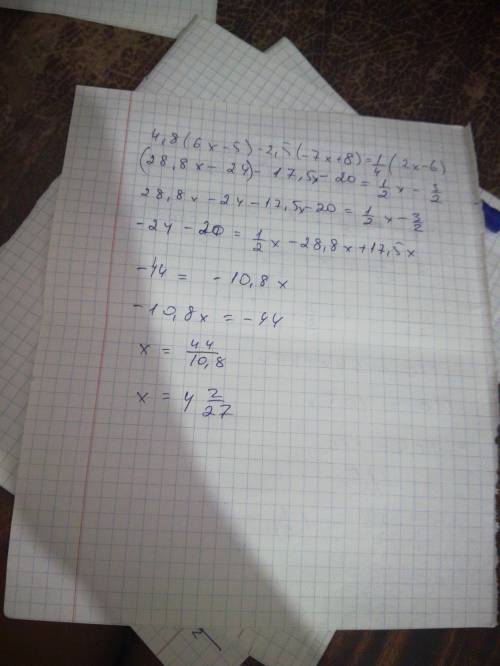 4,8(6x-5)-2,5(-7x+8)=1/4(2x-6)
(28,8x-24)-17,5x-20=1/2x-3/2
28,8x-24-17,5x-20=1/2x-3/2
-24-20=1/2x-28,8x+17,5x
-44=-10,8x
-10,8x=-44
x=44/10,8
x=4 2/27